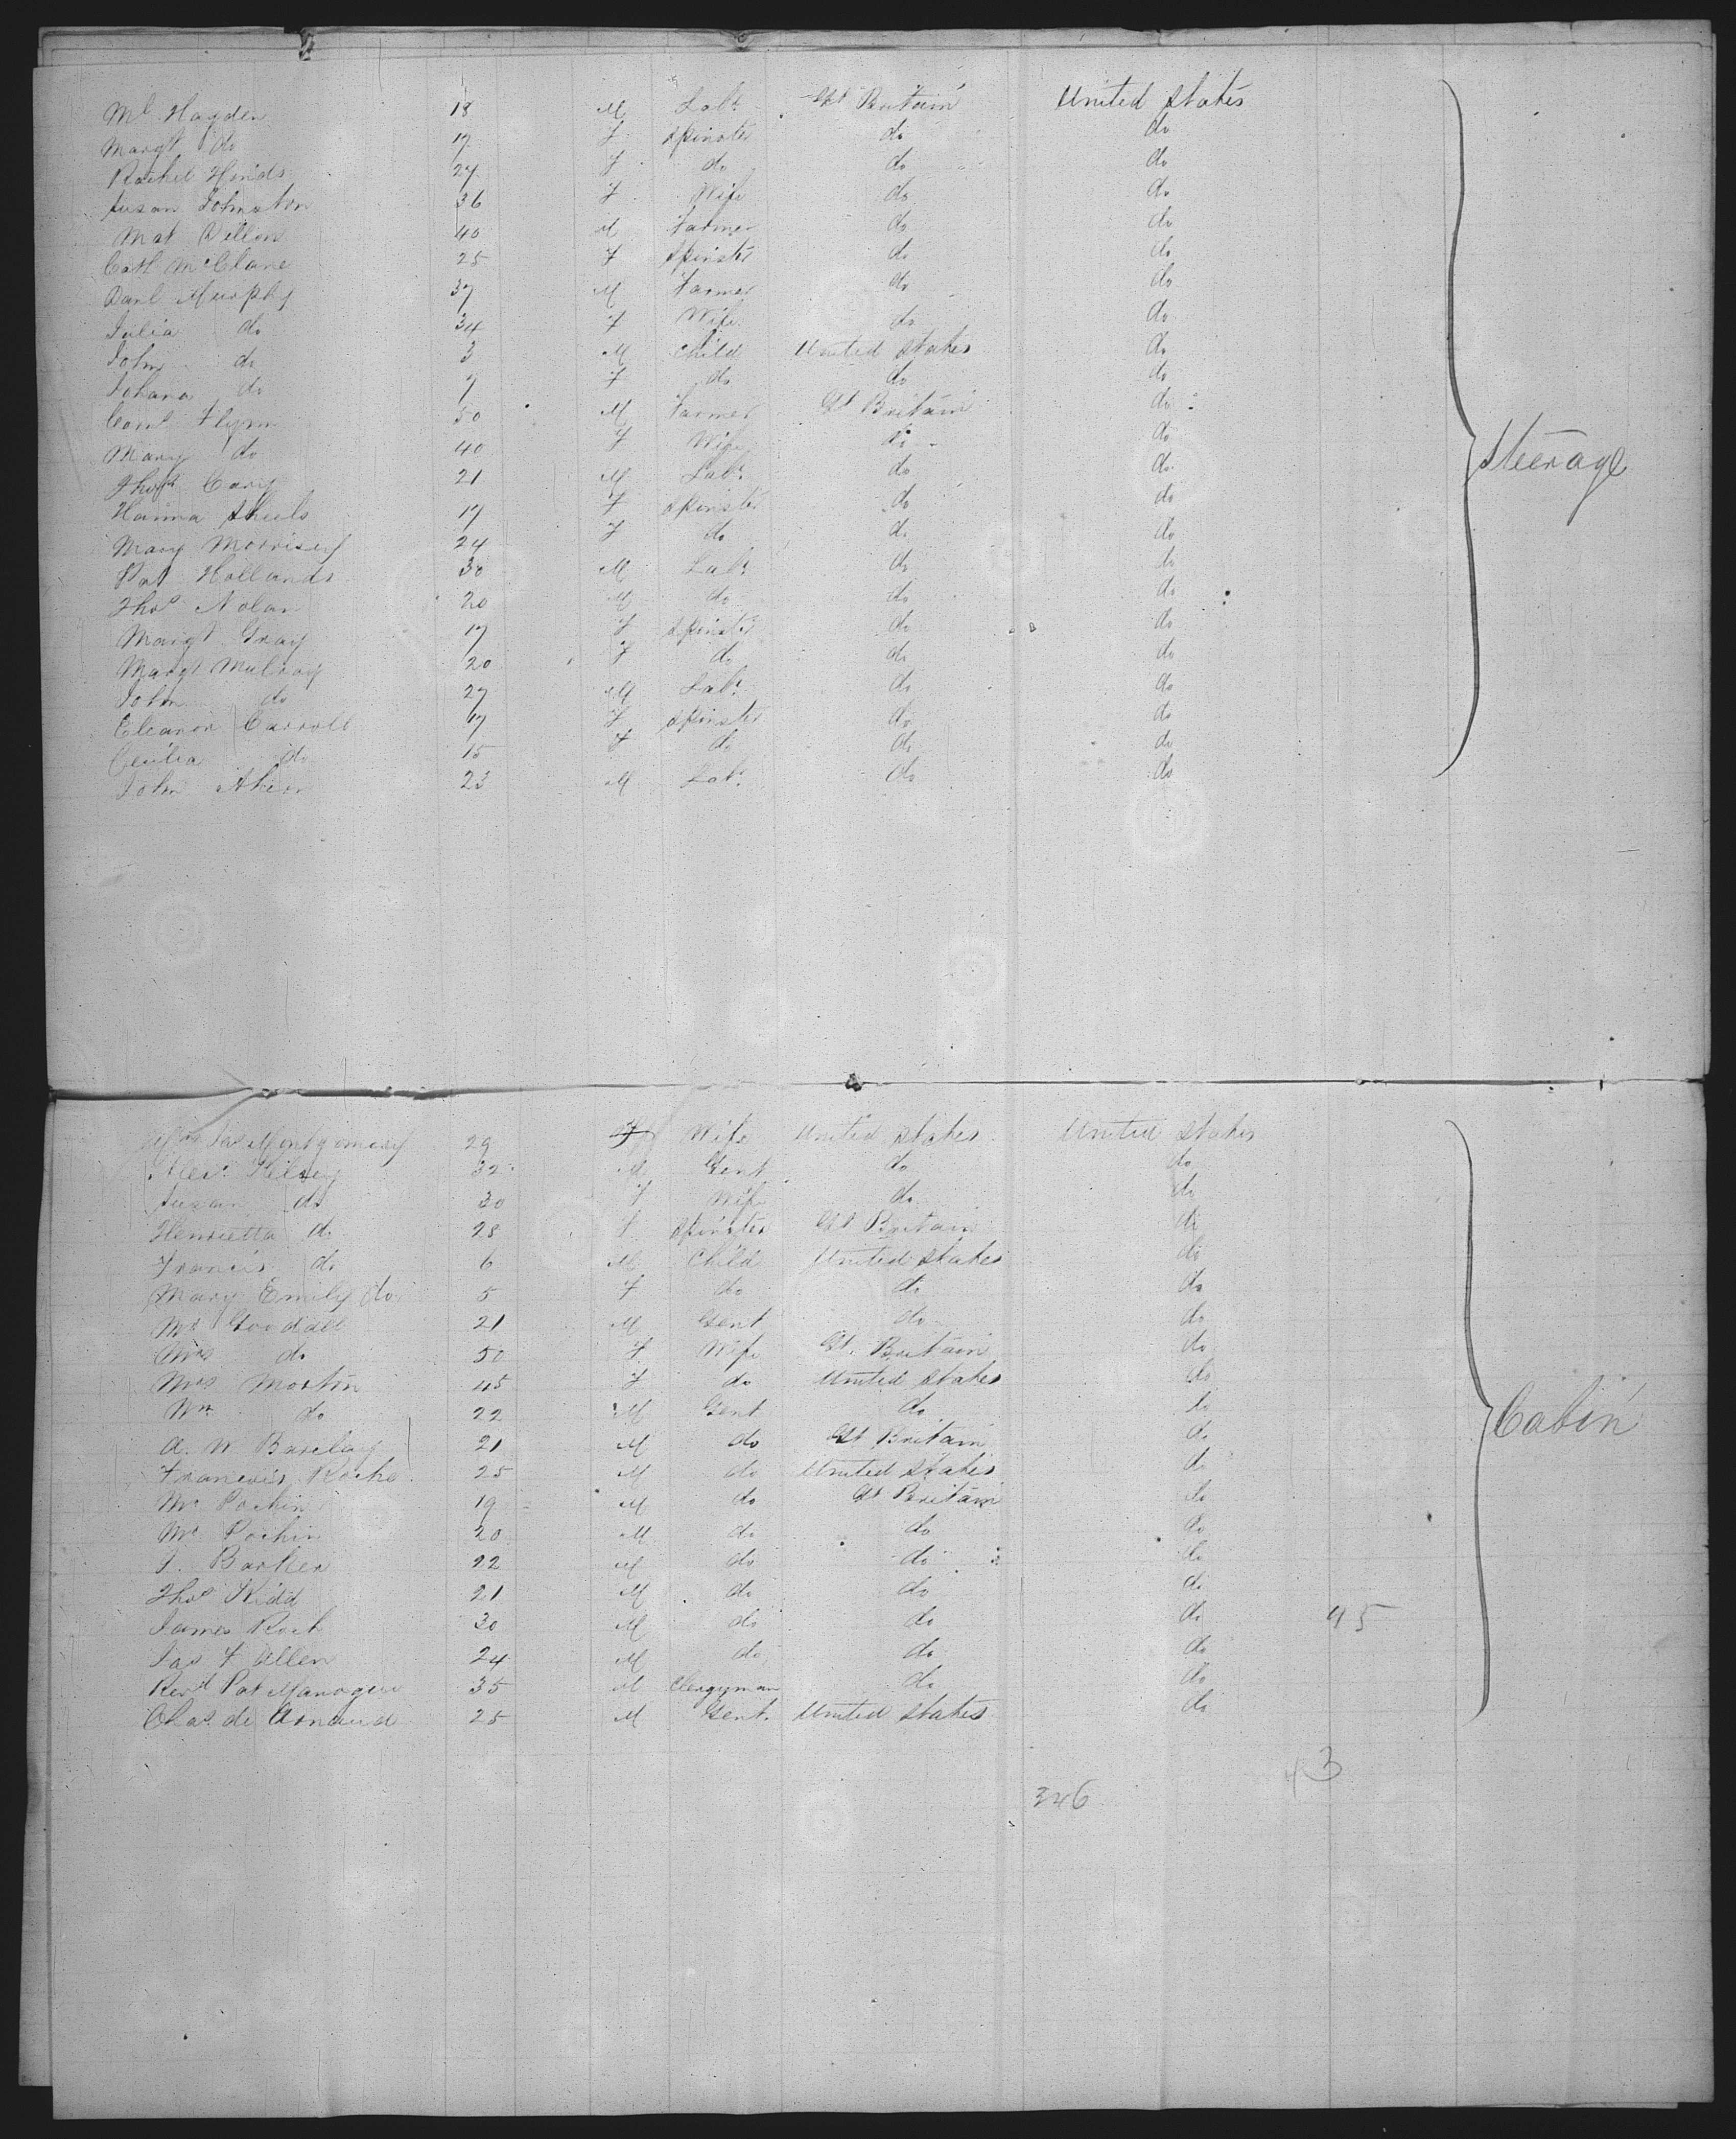 Ml Hayden 18 M Labr Gt Britain United States
Margt do 17 F Spinster do do
Rachel Hinds 27 F do do do
Susan Johnston 36 F Wife do do
Mat Dillon 40 M Farmer do do
Cath McClane 25 F Spinster do do
Danl Murphy 37 M Farmer do do
Julia do 34 F Wife do do
John do 3 M Child United States do
Johana do 7 F do do do
Corns Flynn 50 M Farmer Gt Britain do
Mary do 40 F Wife do do
Steerage
Thos Cary 21 M Labr do do
Hanna Sheels 17 F Spinster do do
Mary Morrisey 24 F do do do
Pat Hollands 30 M Labr do do
Thos Nolan 20 M do do do
Margt Gray 17 F Spinster do do
Margt Mulroy 20 F do do do
John do 27 M Labr do do
Eleanor Carroll 17 F Spinster do do
Cecilia do 15 F do do do
John Ahern 23 M Labr do do
Mrs Jas Montgomery 29 F Wife United States United States
Alexr Kelsey 32 M Gent do do
Susan do 30 F Wife do do
Henrietta do 28 F Spinster Gt Britain do
Francis do 6 M Child United States do
Mary Emily do 5 F do do do
Mr Gooddell 21 M Gent do do
Mrs do 50 F Wife Gt. Britain do
Mrs Mortin 45 F do United States do
Wm do 22 M Gent do do
Cabin
A. W Barclay 21 M do Gt Britain do
Francois Roche 25 M do United States do
Mr Pochin 19 M do Gt Britain do
Mr Pochin 20 M do do do
J. Barker 22 M do do do
Thos Kidd 21 M do do do
James Rock 30 M do do do 95
Jas F Allen 24 M do do do
Revd Pat Manogue 35 M Clergyman do do
Chas. de Arnaud 25 M Gent. United States do
43
346